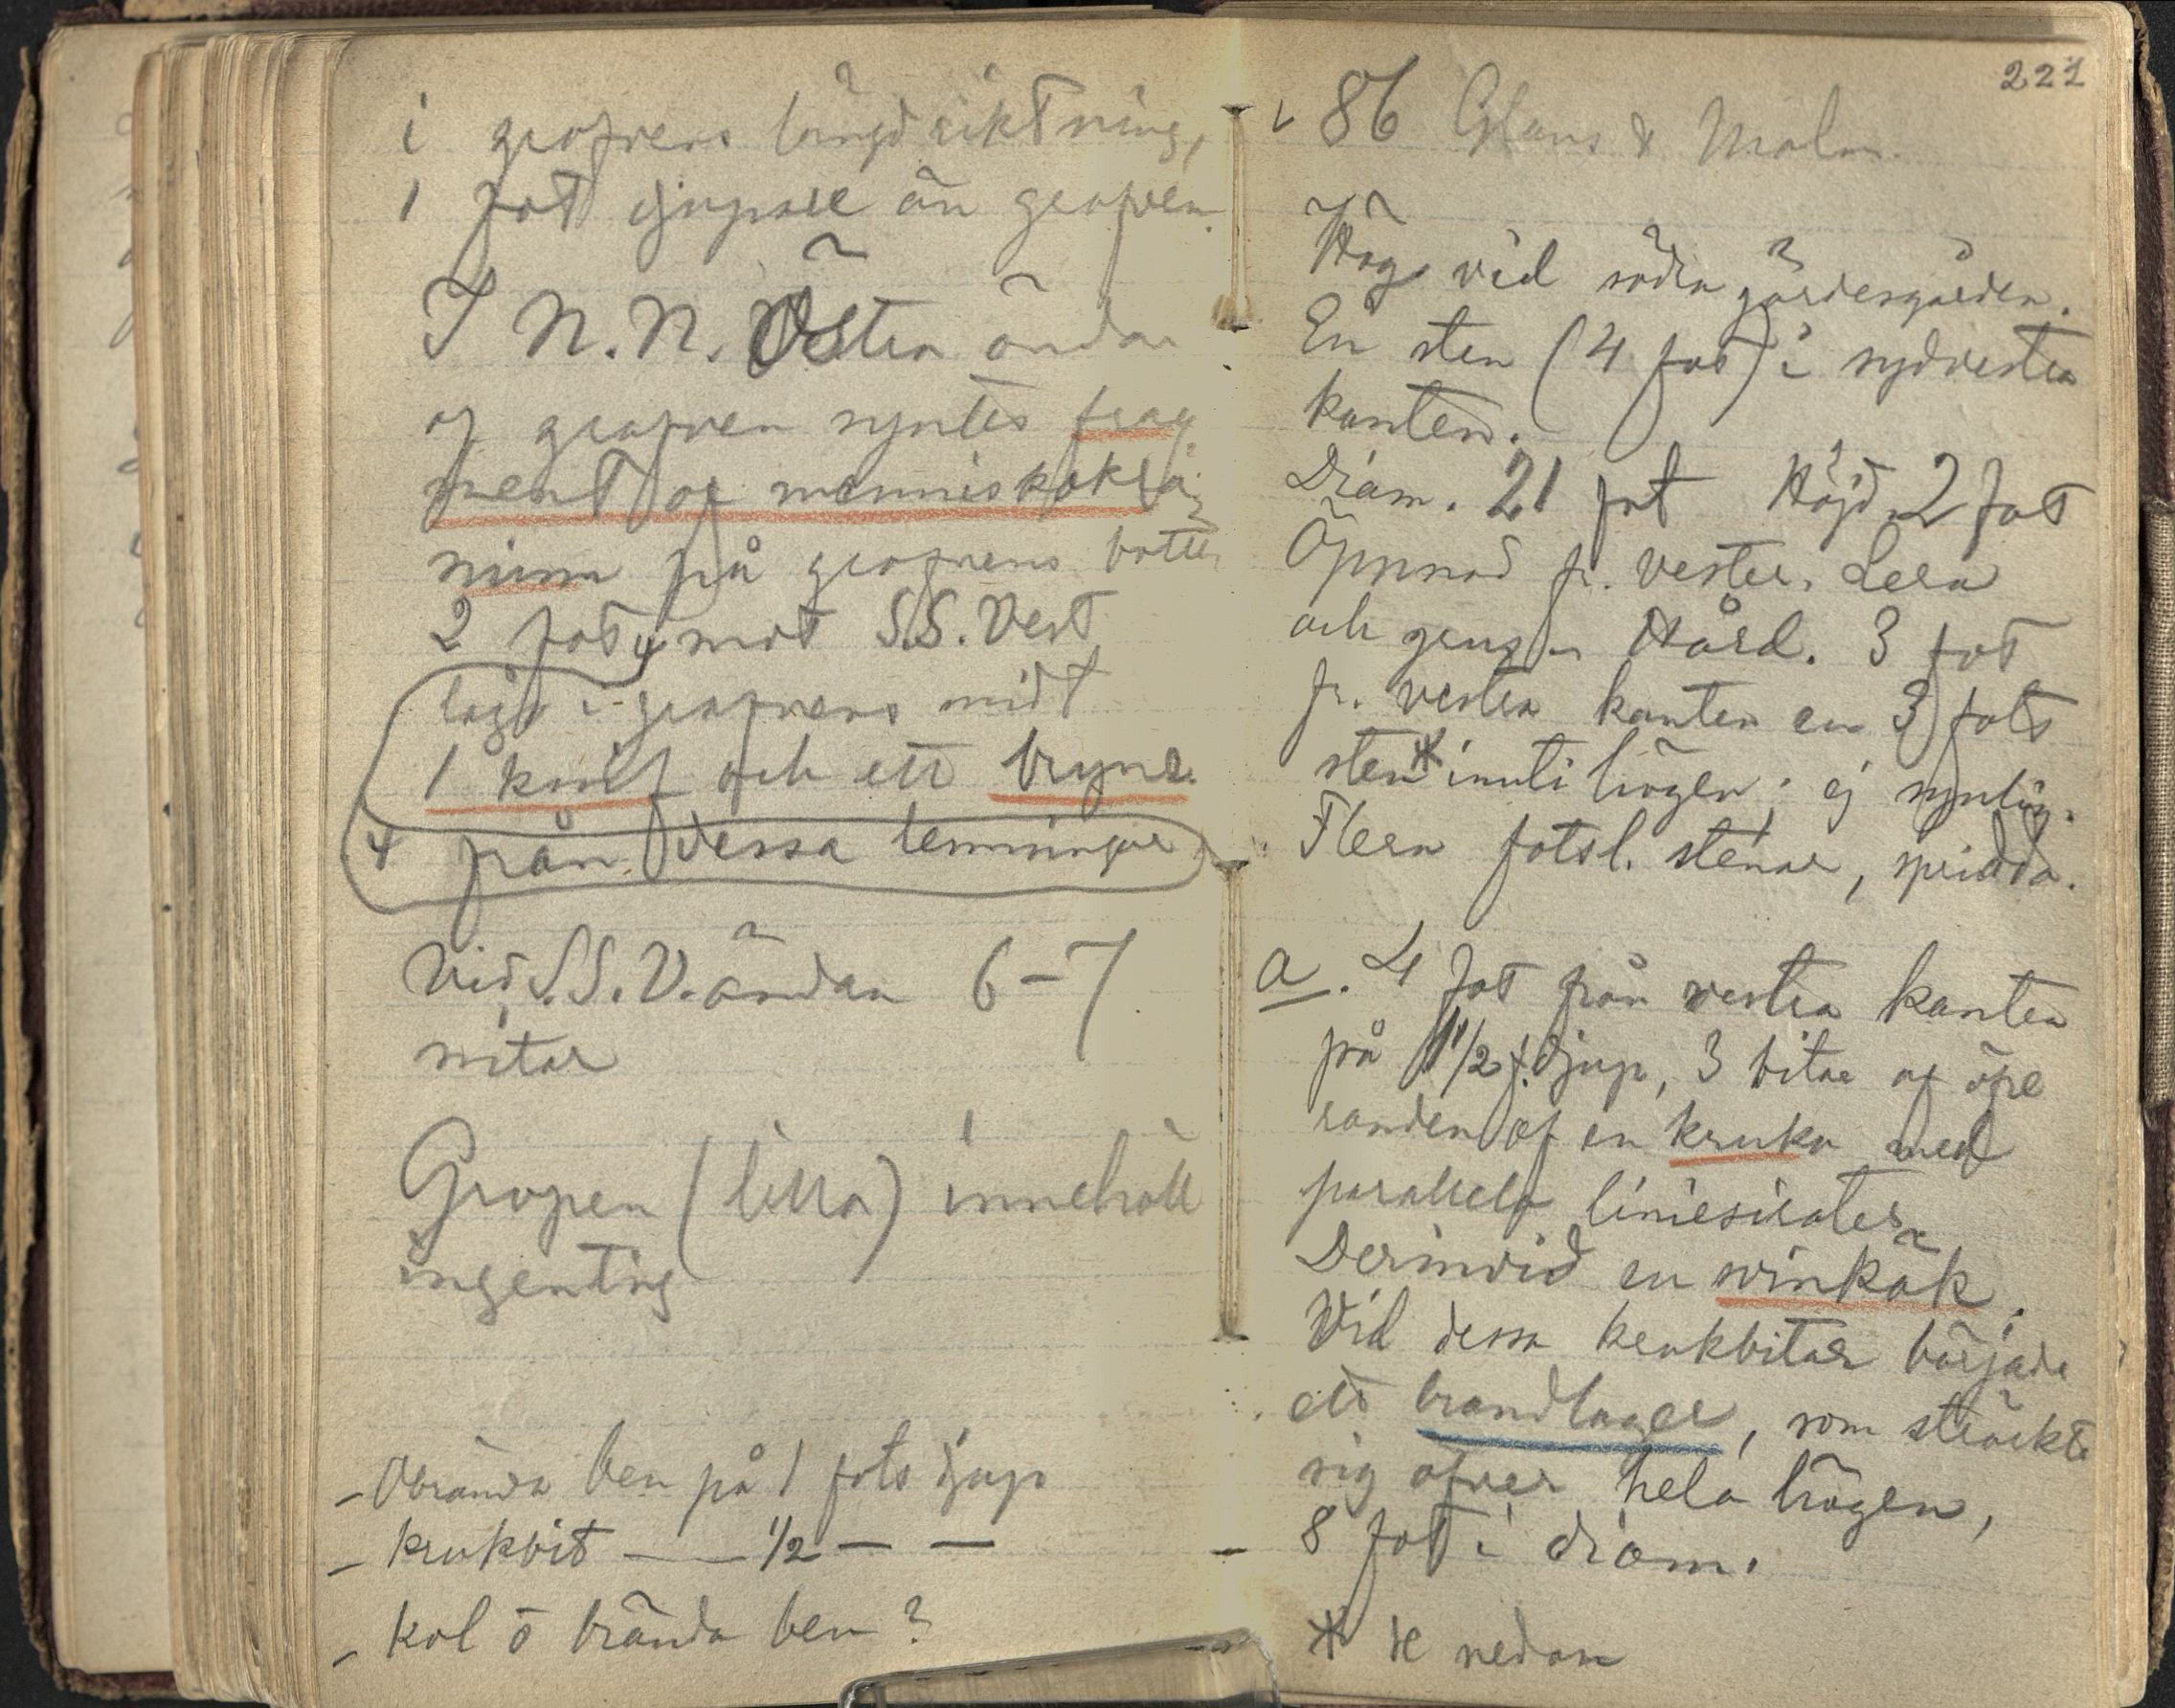 i grafvens längdriktning,
1 fot djupare än grafven.
I N.N. Östra ändan
af grafven syntes frag
ment af menniskoklä
nun på grafvens botten
2 fot mot S.S. Vest
lågo i grafvens midt
1 knif och ett bryne.
4 från dessa lemningar
Vid S.S.V. ändan 6-7
nitar
Gropen (lilla) innehöll
ingenting
- Obrända ben på 1 fots djup
- krukbit — — 1/2 — —
- kol o brända ben?
221
86 Glans & Malm.
Hög vid södra gärdesgården.
En sten (4 fot) i sydvestra
kanten.
Diam. 21 fot Höjd 2 fot
Öppnad fr. vester. Lera
och grus - Hård. 3 fot
fr. vestra kanten en 3 fots
sten* inuti högen; ej synlig.
Flera fotsl. stenar, spridda.
a. 4 fot från vestra kanten
på 1 1/2 f. djup, 3 bitar af öfre
randen af en kruka med
parallela liniesirater
Derinvid en svinkäk.
Vid dessa krukbitar började
ett brandlager, som sträckte
sig öfver hela högen,
8 fot i diam.
* se nedan